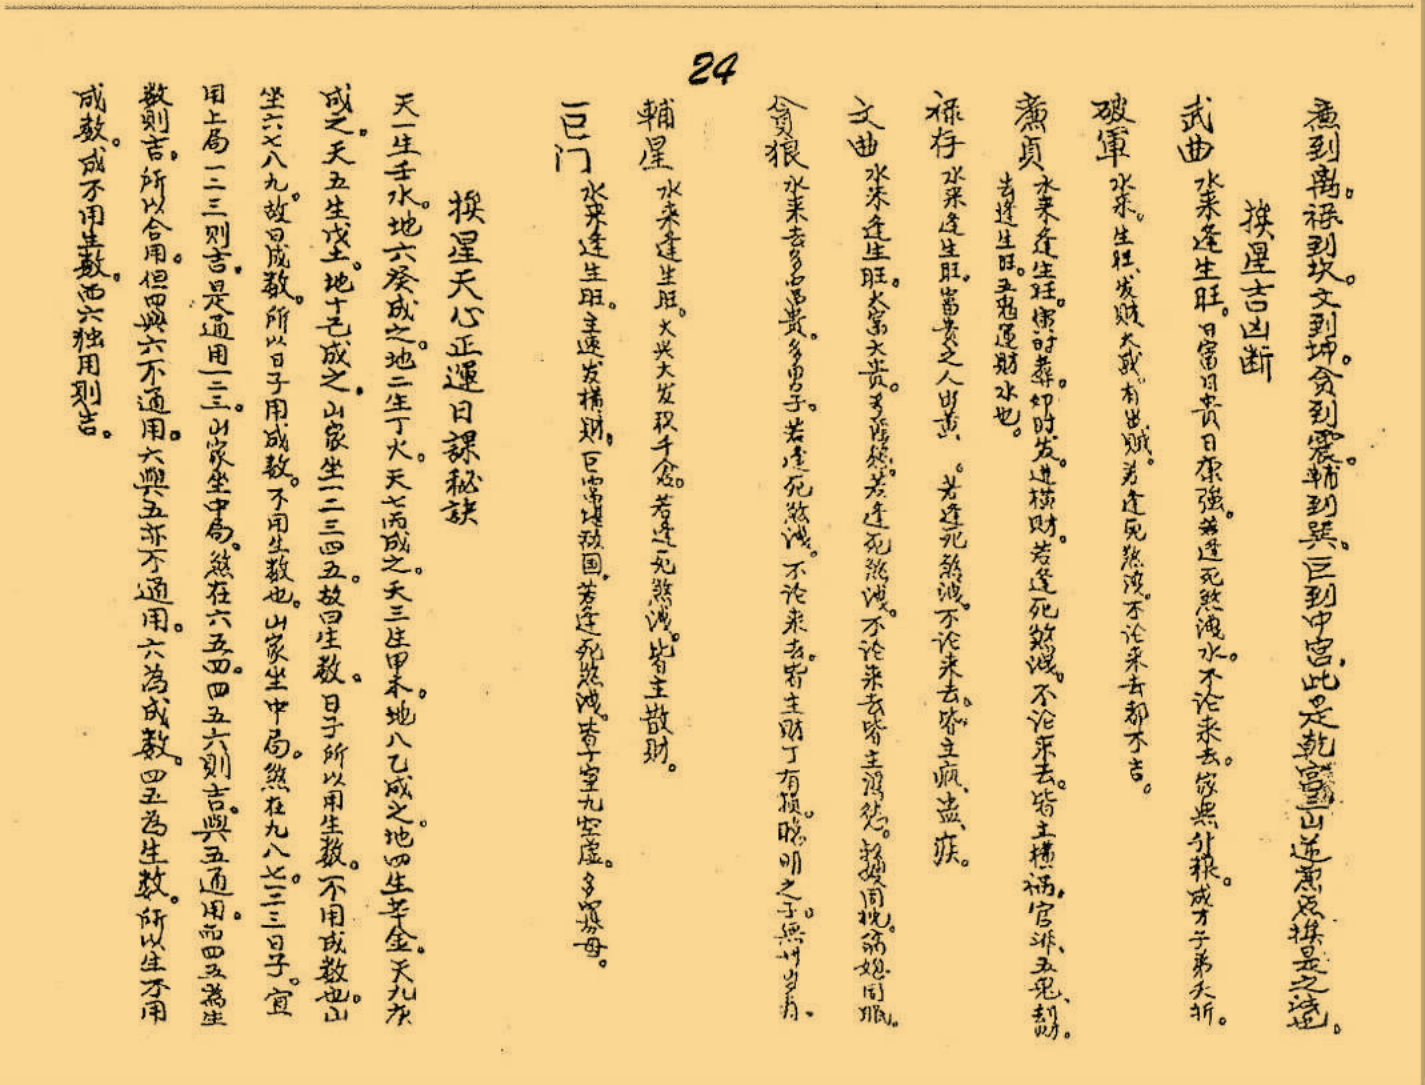 24
廉到离。禄到坎。文到坤。贪到震。輔到巽。巨到中宫。此是乾宫三山逆廉
挨星吉凶断
武曲 水来逢生旺。日富日貴日康強。若逢死煞洩水。不论来去。家無升糧。成才子弟夭折。
破軍 水来。生旺、发贼大盛。有出贼。若逢死煞洩。不论来去都不吉。
廉貞 水来逢生旺。寅时葬。卯时发。进横财。若逢死煞洩。不论来去。皆主横祸。官非、五鬼、劫财。
去逢生旺。五鬼運财水也。
禄存 水来逢生旺。富貴之人出黄。若逢死煞洩。不论来去。皆主疯、盅、疾。
文曲 水来逢生旺。大富大贵。若逢死煞洩。不论来去皆主淫
貪狼 水来去多富贵。多男子。若逢死煞洩。不论来去。皆主财丁有损。聪明之子。無廿岁寿。
輔星 水来逢生旺。大兴大发积千仓。若逢死煞洩。皆主散财。
巨门 水来逢生旺。主速发横财。巨富堪敌国。若逢死煞洩。皆十室九空虚。多寡母。
挨星天心正運日課秘訣
天一生壬水。地六癸成之。地二生丁火。天七丙成之。天三生甲木。地八乙成之。地四生辛金。天九庚
成之。天五生戊土。地十己成之。山家坐一二三四五。故曰生数。日子所以用生数。不用成数也。山
坐六七八九。故曰成数。所以日子用成数。不用生数也。山家坐中局。煞在九八七一二三日子。宜
用上局一二三则吉。是通用一二三。山家坐中局。煞在六五四。四五六则吉。與五通用。而四五為生
数則吉。所以合用。但四與六不通用。六與五亦不通用。六為成数。四五為生数。所以生不用
成数。成不用生数。而六独用则吉。